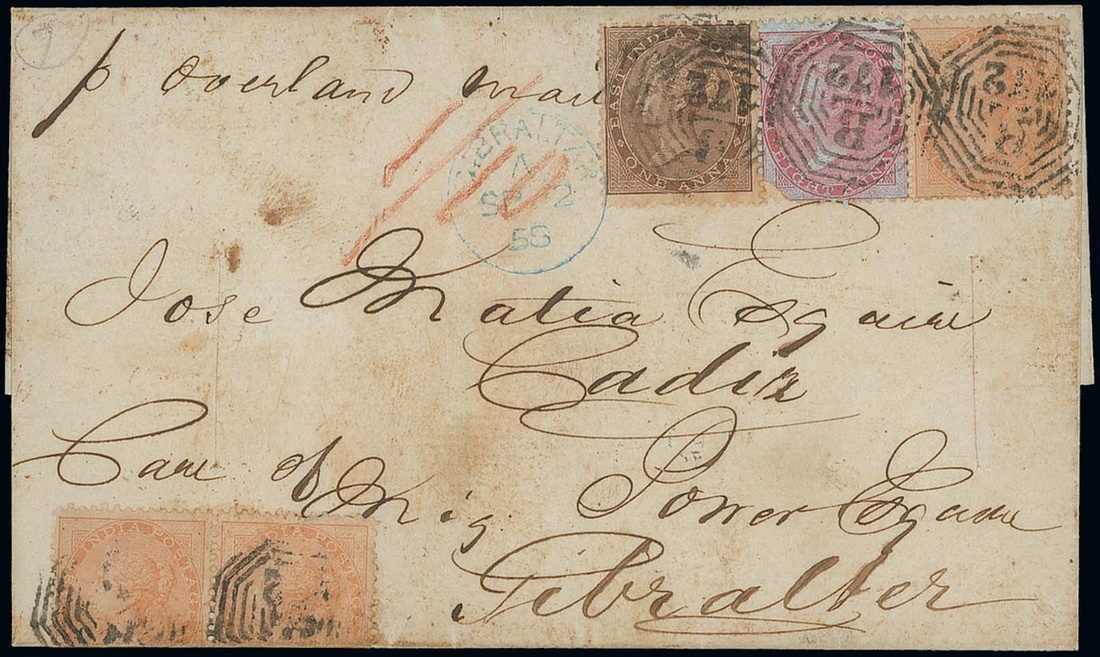 7
p Overland mail
EAST INDIA POSTAGE
ONE ANNA
EAST INDIA POSTAGE
EIGHT ANNAS
B
172
B
172
172
GIBRALTAR
A
SP 2
Jose Matia Esquire
Cadiz
Care of Mig Power Esquire
Gibralter
EAST INDIA POSTAGE
EAST INDIA POSTAGE